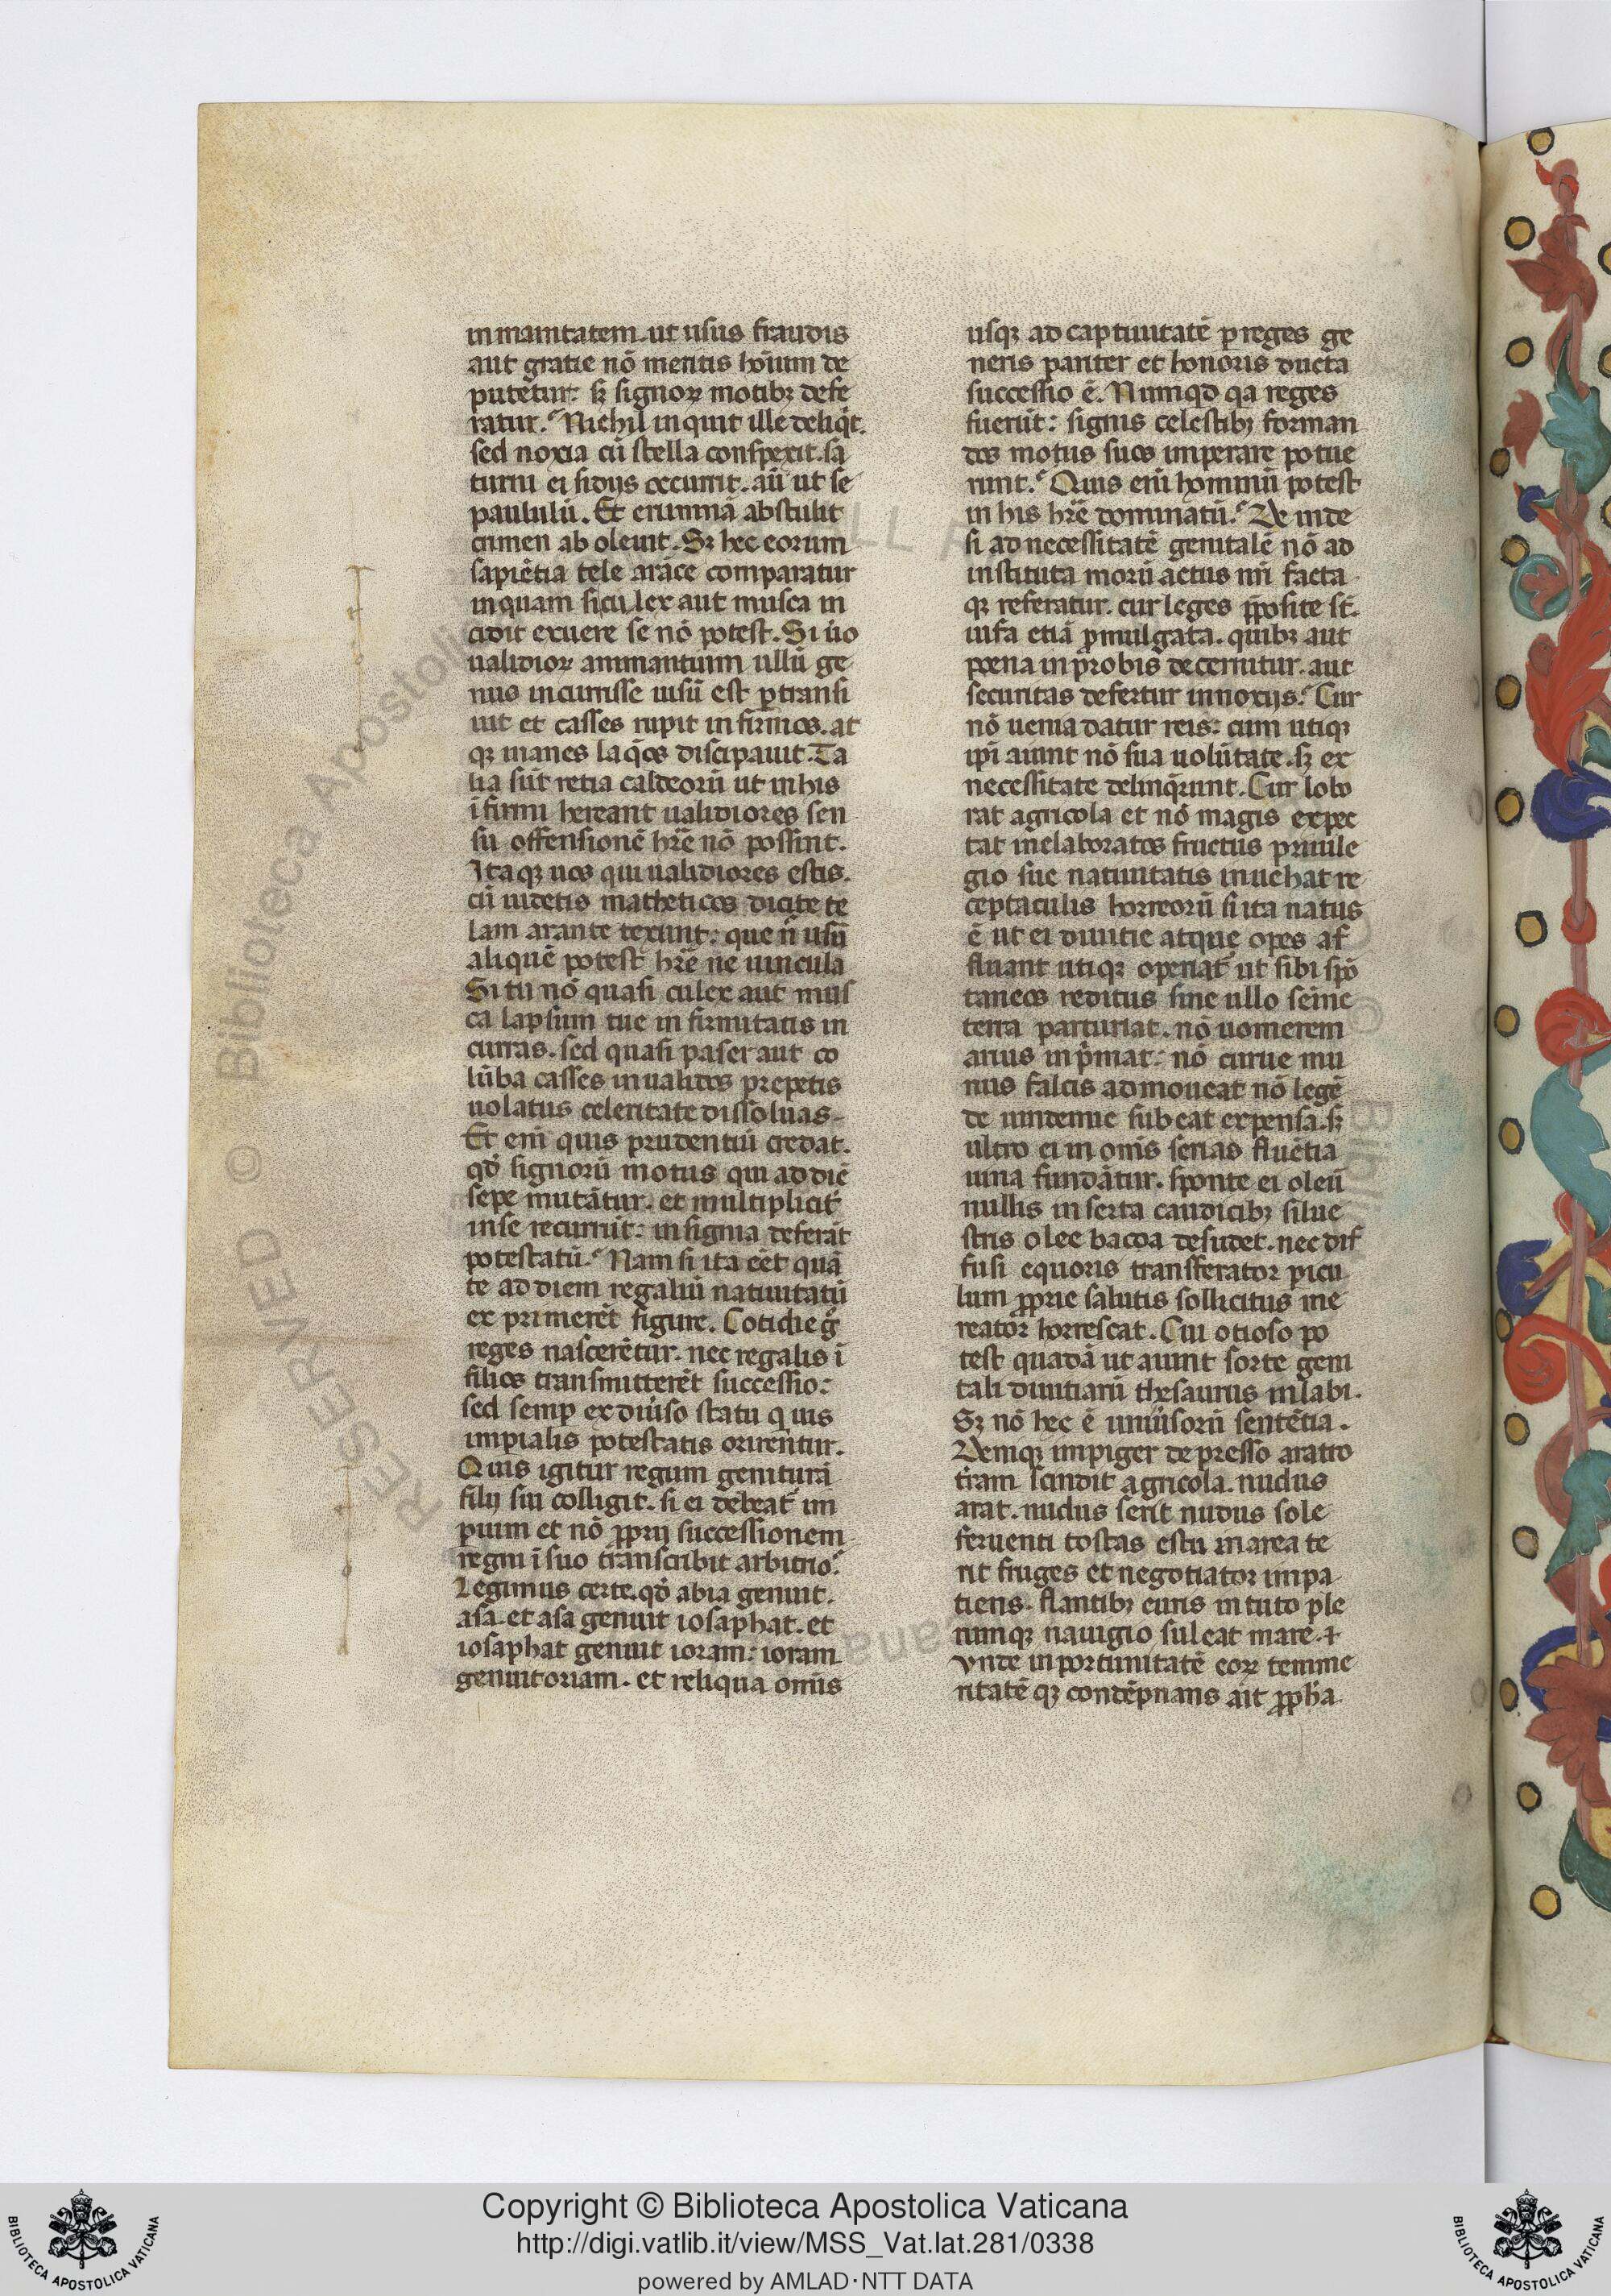 inmanitatem. ut usus fraudis
aut gratie nō meritis hoīum de
putētur: sꝫ signoꝝ motibꝫ defe
ratur. Nichil inquit ille deliq̄t.
sed noxia cū stella conspexit. sa
turni ei sidus occurrit. aūt ut se
paululū. Et erumnā abstulit
crimen aboleuit. Sꝫ hec eorum
sapiētia tele arāce comparatur
inquam si culex aut musca in
cidit exuere se nō potest. Si ūo
ualidioꝝ animantium ullū ge
nus incurrisse uisū est ꝑtransi
uit et casses rupit infirmos. at
qꝫ inanes laq̄os discipauit. Ta
lia sūt retia caldeorū ut in his
īfirmi hereant ualidiores sen
su offensionē hr̄e nō possint.
Itaqꝫ uos qui ualidiores estis.
cū uidetis matheticos dicite te
lam arante texunt: que n̄ usū
aliquē potest hr̄e ne uincula
Si tu nō quasi culex aut mus
ca lapsum tue infirmitatis in
curras. sed quasi paser aut co
lūba casses inualidos prepetis
uolatus celeritate dissoluas.
Et enī quis prudentiū credat.
qd̄ signorū motus qui ad diē
sepe mutātur. et multiplicit̄
in se recurrūt: insignia deferāt
potestatū. Nam si ita eēt quā
te ad diem regaliū natiuitatū
exprimerēt figure. Cotidie g̊
reges nascerētur. nec regalis ī
filios transmitterēt successio:
sed semꝑ ex diūso statu quis
imꝑialis potestatis orirēntur.
Quis igitur regum geniturā
filij sui colligit. si ei debeat̄ im
ꝑium et nō ꝓprij successionem
regni ī suo transcribit arbitrio.
Legimus certe. qd̄ abia genuit.
asa. et asa genuit iosaphat. et
iosaphat genuit ioram: ioram
genuit oriam. et reliqua omīs
usqꝫ ad captiuitatē ꝑ reges ge
neris pariter et honoris ducta
successio ē. Numqd̄ qa reges
fuerūt: signis celestibꝫ forman
dos motus suos imperare potue
runt. Quis enī hominū potest
in his hr̄e dominatū. De inde
si ad necessitatē genitalē nō ad
instituta morū actus nr̄i facta
qꝫ referatur. cur leges ꝓposite st̄.
iufa etiā ꝓmulgata. quibꝫ aut
pena inprobis decernitur. aut
securitas defertur innoxijs. Cur
nō uenia datur reis: cum utiqꝫ
ip̄i aiunt nō sua uolūtate. sꝫ ex
necessitate delinq̄runt. Cur lobo
rat agricola et nō magis expec
tat inelaboratos fructus priuile
gio sue natiuitatis inuehat re
ceptaculis horreorū si ita natus
ē ut ei diuitie atque opes af
fluant utiqꝫ operiat̄ ut sibi spō
taneos reditus sine ullo seīne
terra parturiat. nō uomerem
aruis inp̄mat: nō curue ma
nus falcis admoueat nō legē
de uindemie subeat expensa. sꝫ
ultro ei in omīs serias fluētia
uina fundātur. sponte ei oleū
nullis inserta caudicibꝫ silue
stris olee bacoa desudet. nec dif
fusi equoris transferator ꝑicu
lum ꝓprie salutis sollicitus me
reator horrescat. Cui otioso po
test quadā ut aiunt sorte geni
tali diuitiarū thesaurus inlabi.
Sꝫ nō hec ē uniūsorū sentētia.
Deniqꝫ impiger depresso aratro
t̄ram scindit agricola. nudus
arat. nudus serit nudus sole
feruenti tostas estu in area te
rit fruges et negotiator impa
tiens. flantibꝫ euris intuto ple
rumqꝫ nauigio sulcat mare. +
vnde inportunitatē eoꝝ temme
ritatē qꝫ contēpnans ait ꝓpha
Copyright © Biblioteca Apostolica Vaticana
http://digi.vatlib.it/view/MSS_Vat.lat.281/0338
powered by AMLAD·NTT DATA
BIBLIOTECA APOSTOLICA VATICANA
BIBLIOTECA APOSTOLICA VATICANA